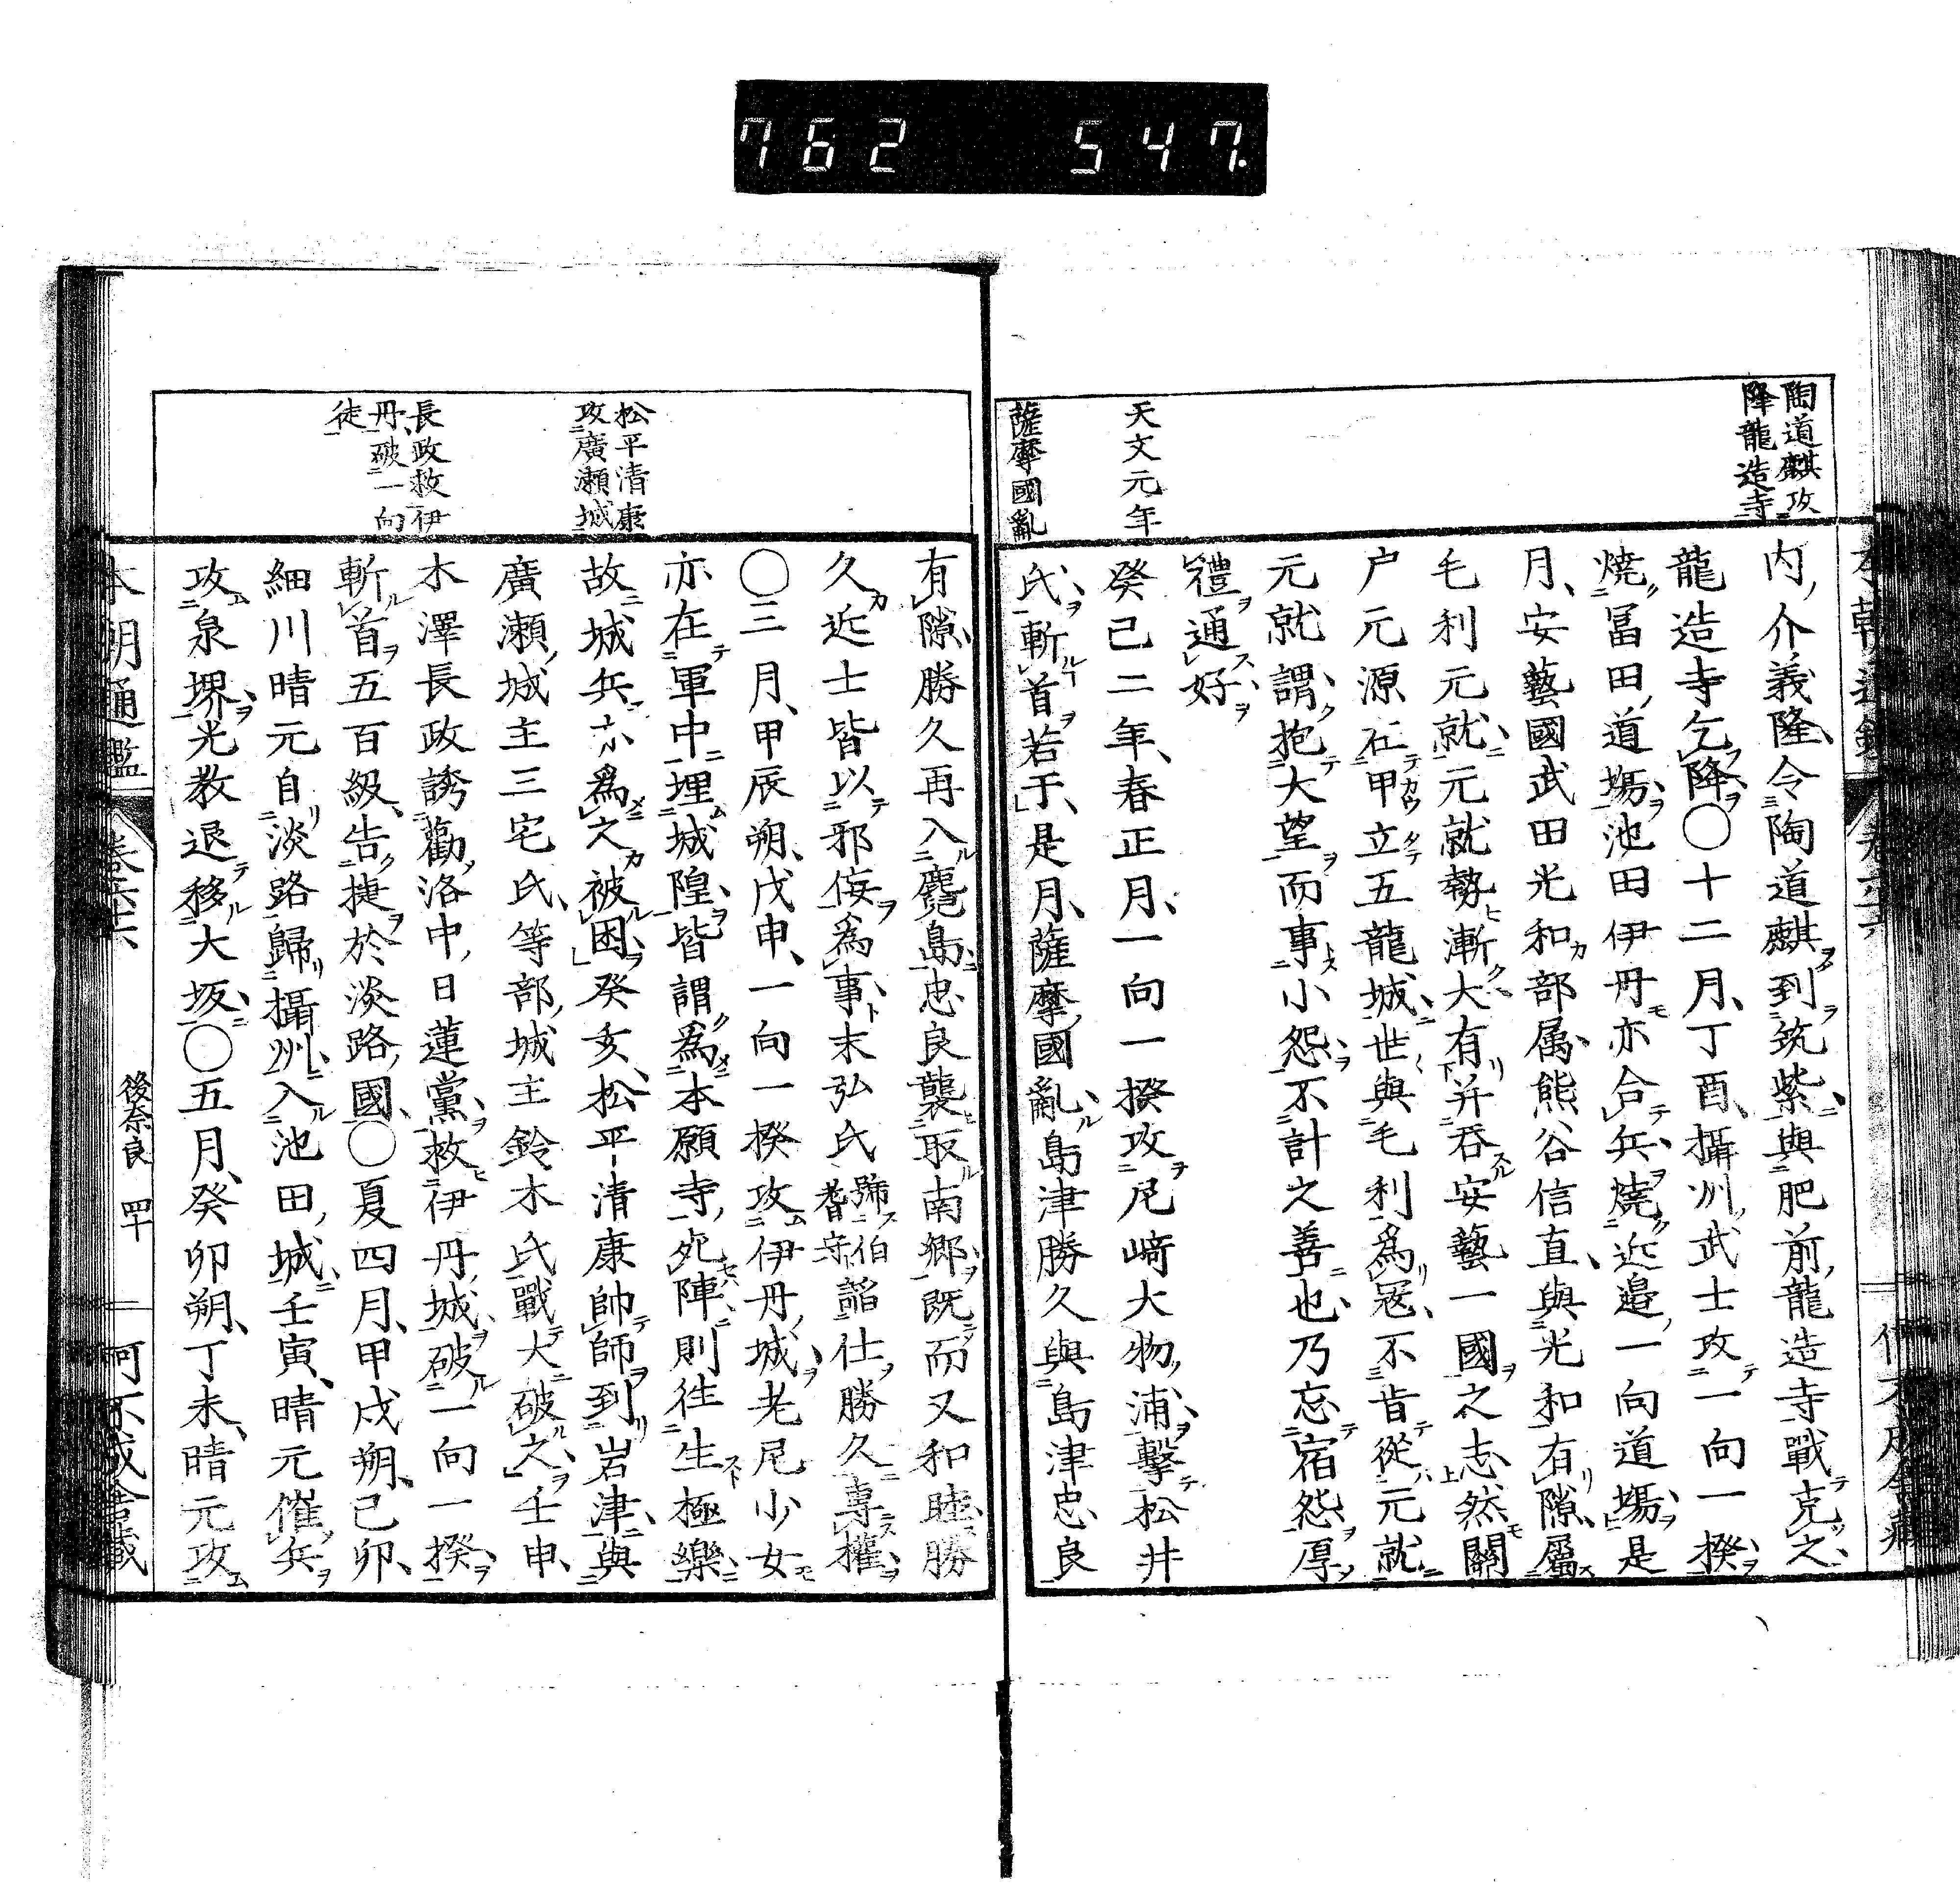 762 547.
陶道麒攻
降龍造寺
天文元年
薩摩國亂
内介義隆令陶道麒到筑紫與肥前龍造寺戰克之
龍造寺乞降〇十二月丁酉攝州武士攻一向一揆
燒冨田道塲池田伊丹亦合兵燒近邉一向道塲是
月安藝國武田光和部属熊谷信直與光和有隙屬
毛利元就元就勢漸大有并吞安藝一國之志然闗
户元源在甲立五龍城世與毛利爲冦不肯從元就
元就謂抱大望而事小怨不計之善也乃忘宿怨厚
禮通好
癸己二年春正月一向一揆攻尼﨑大物浦擊松井
氏斬首若干是月薩摩國亂島津勝久與島津忠良
松平清康
攻廣瀬城
長政救伊
丹破一向
徒
有隙勝久再入麑島忠良襲取南郷既而又和睦勝
久近士皆以邪侫爲事末弘氏號伯耆守諂仕勝久專權
〇三月甲辰朔戊申一向一揆攻伊丹城老尼少女
亦在軍中埋城隍皆謂爲本願寺死陣則徃生極樂
故城兵亦爲之被困癸亥松平清康帥師到岩津與
廣瀬城主三宅氏等部城主鈴木氏戰大破之壬申
木澤長政誘勸洛中日蓮黨救伊丹城破一向一揆
斬首五百級告捷於淡路國〇夏四月甲戌朔己卯
細川晴元自淡路歸攝州入池田城壬寅晴元催兵
攻泉堺光教退移大坂〇五月癸卯朔丁未晴元攻
本朝通鑑 卷六六 後奈良 四十